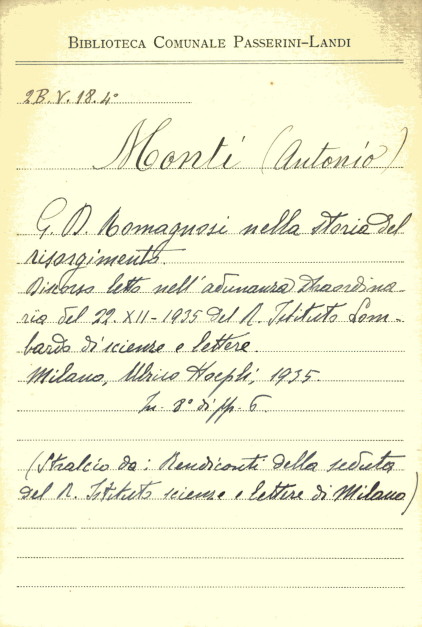 BIBLIOTECA COMUNALE PASSERINI-LANDI
2B.V.18.4°
Monti (Antonio)
G. D. Romagnosi nella storia del
risorgimento.
Discorso letto nell'adunanza straordina-
ria del 22-XII-1935 del R. Istituto Lom-
bardo di scienze e lettere
Milano, Ulrico Hoepli, 1935.
In-8° di pp. 6.
(Stralcio da: Rendiconti della seduta
del R. Istituto scienze e lettere di Milano)